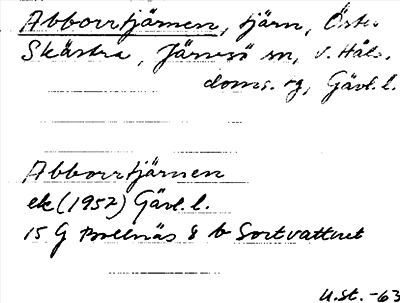 Abborrtjärnen, tjärn, Östra
Skästra, Järvsö sn, V. Häls.
doms. sg, Gävl. l.
Abborrtjärnen
ek (1957) Gävl. l.
15 G Bollnäs 8 b Sortvattnet
U.St. -63